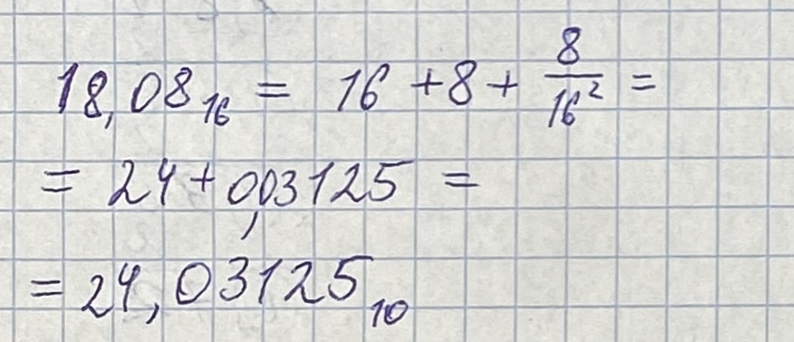 18,08₁₆ = 16 + 8 + 8/16² =
= 24 + 0,03125 =
= 24,03125₁₀